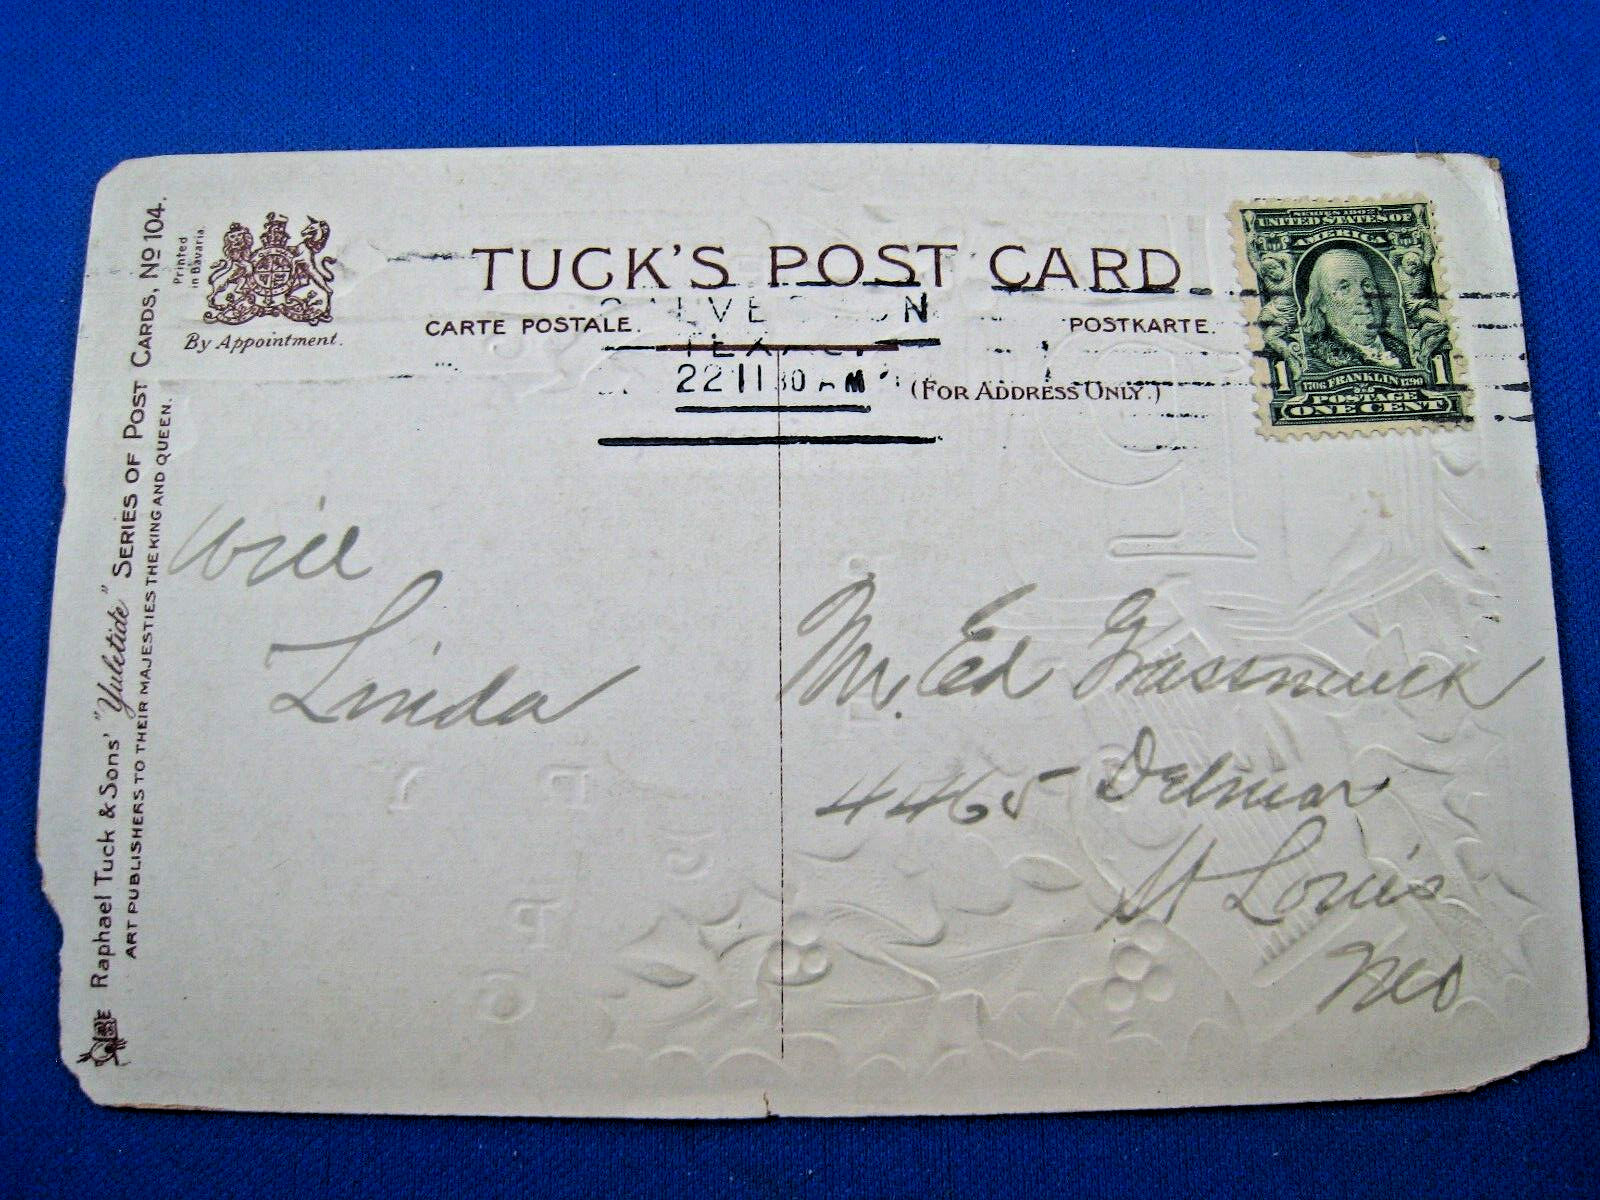 Raphael Tuck & Sons' "Yuletide" SERIES OF POST CARDS, No 104.
ART PUBLISHERS TO THEIR MAJESTIES THE KING AND QUEEN.
Printed
in Bavaria.
By Appointment.
TUCK'S POST CARD
CARTE POSTALE.
POSTKARTE.
(FOR ADDRESS ONLY.)
22 11 30 AM
SERIES 1902
UNITED STATES OF
AMERICA
1 1
1706 FRANKLIN 1790
POSTAGE
ONE CENT
Will
Linda
Mr. Ed
4465 Delmar
St Louis
Mo